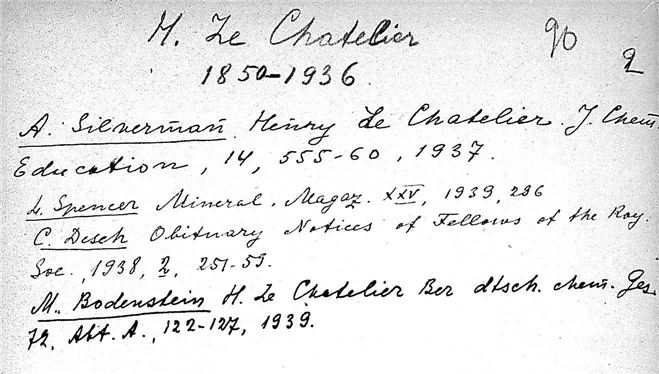 H. Le Chatelier 90 2
1850-1936.
A. Silverman Henry Le Chatelier. J. Chem.
Education, 14, 555-60, 1937.
L. Spencer Mineral. Magaz. XXV, 1939, 296
C. Desch Obituary Notices of Fellows of the Roy.
Soc., 1938, 2, 251-59.
M. Bodenstein H. Le Chatelier Ber dtsch. chem. Ges.
72, Abt. A., 122-127, 1939.